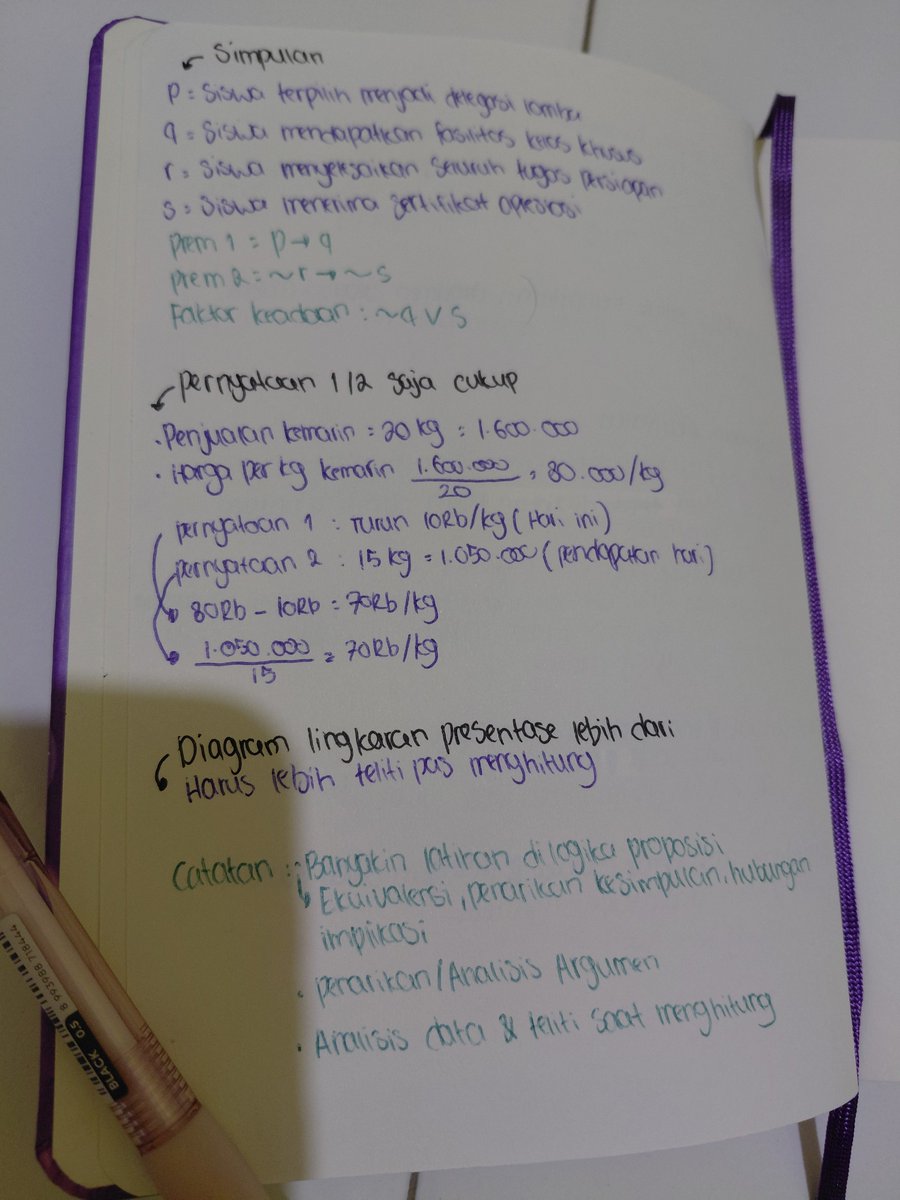 Simpulan
P = Siswa terpilih menjadi delegasi lomba
q = Siswa mendapatkan fasilitas kelas khusus
r = Siswa menyelsaikan seluruh tugas persiapan
s = Siswa menerima sertifikat apresiasi
prem 1 = p → q
prem 2 = ~r → ~s
Faktor keadaan : ~q v s
pernyataan 1/2 saja cukup
• Penjualan kemarin = 20 kg = 1.600.000
• Harga per kg kemarin 1.600.000/20 = 80.000/kg
pernyataan 1 : Turun 10Rb/kg (Hari ini)
pernyataan 2 : 15 kg = 1.050.000 (pendapatan hari)
80Rb - 10Rb = 70Rb/kg
1.050.000/15 = 70Rb/kg
Diagram lingkaran presentase lebih dari
Harus lebih teliti pas menghitung
Catatan : • Banyakin latihan di logika proposisi
Ekuivalensi, penarikan kesimpulan, hubungan
implikasi
• penarikan/Analisis Argumen
• Analisis data & teliti saat menghitung
8 993988 718444
BLACK 0.5